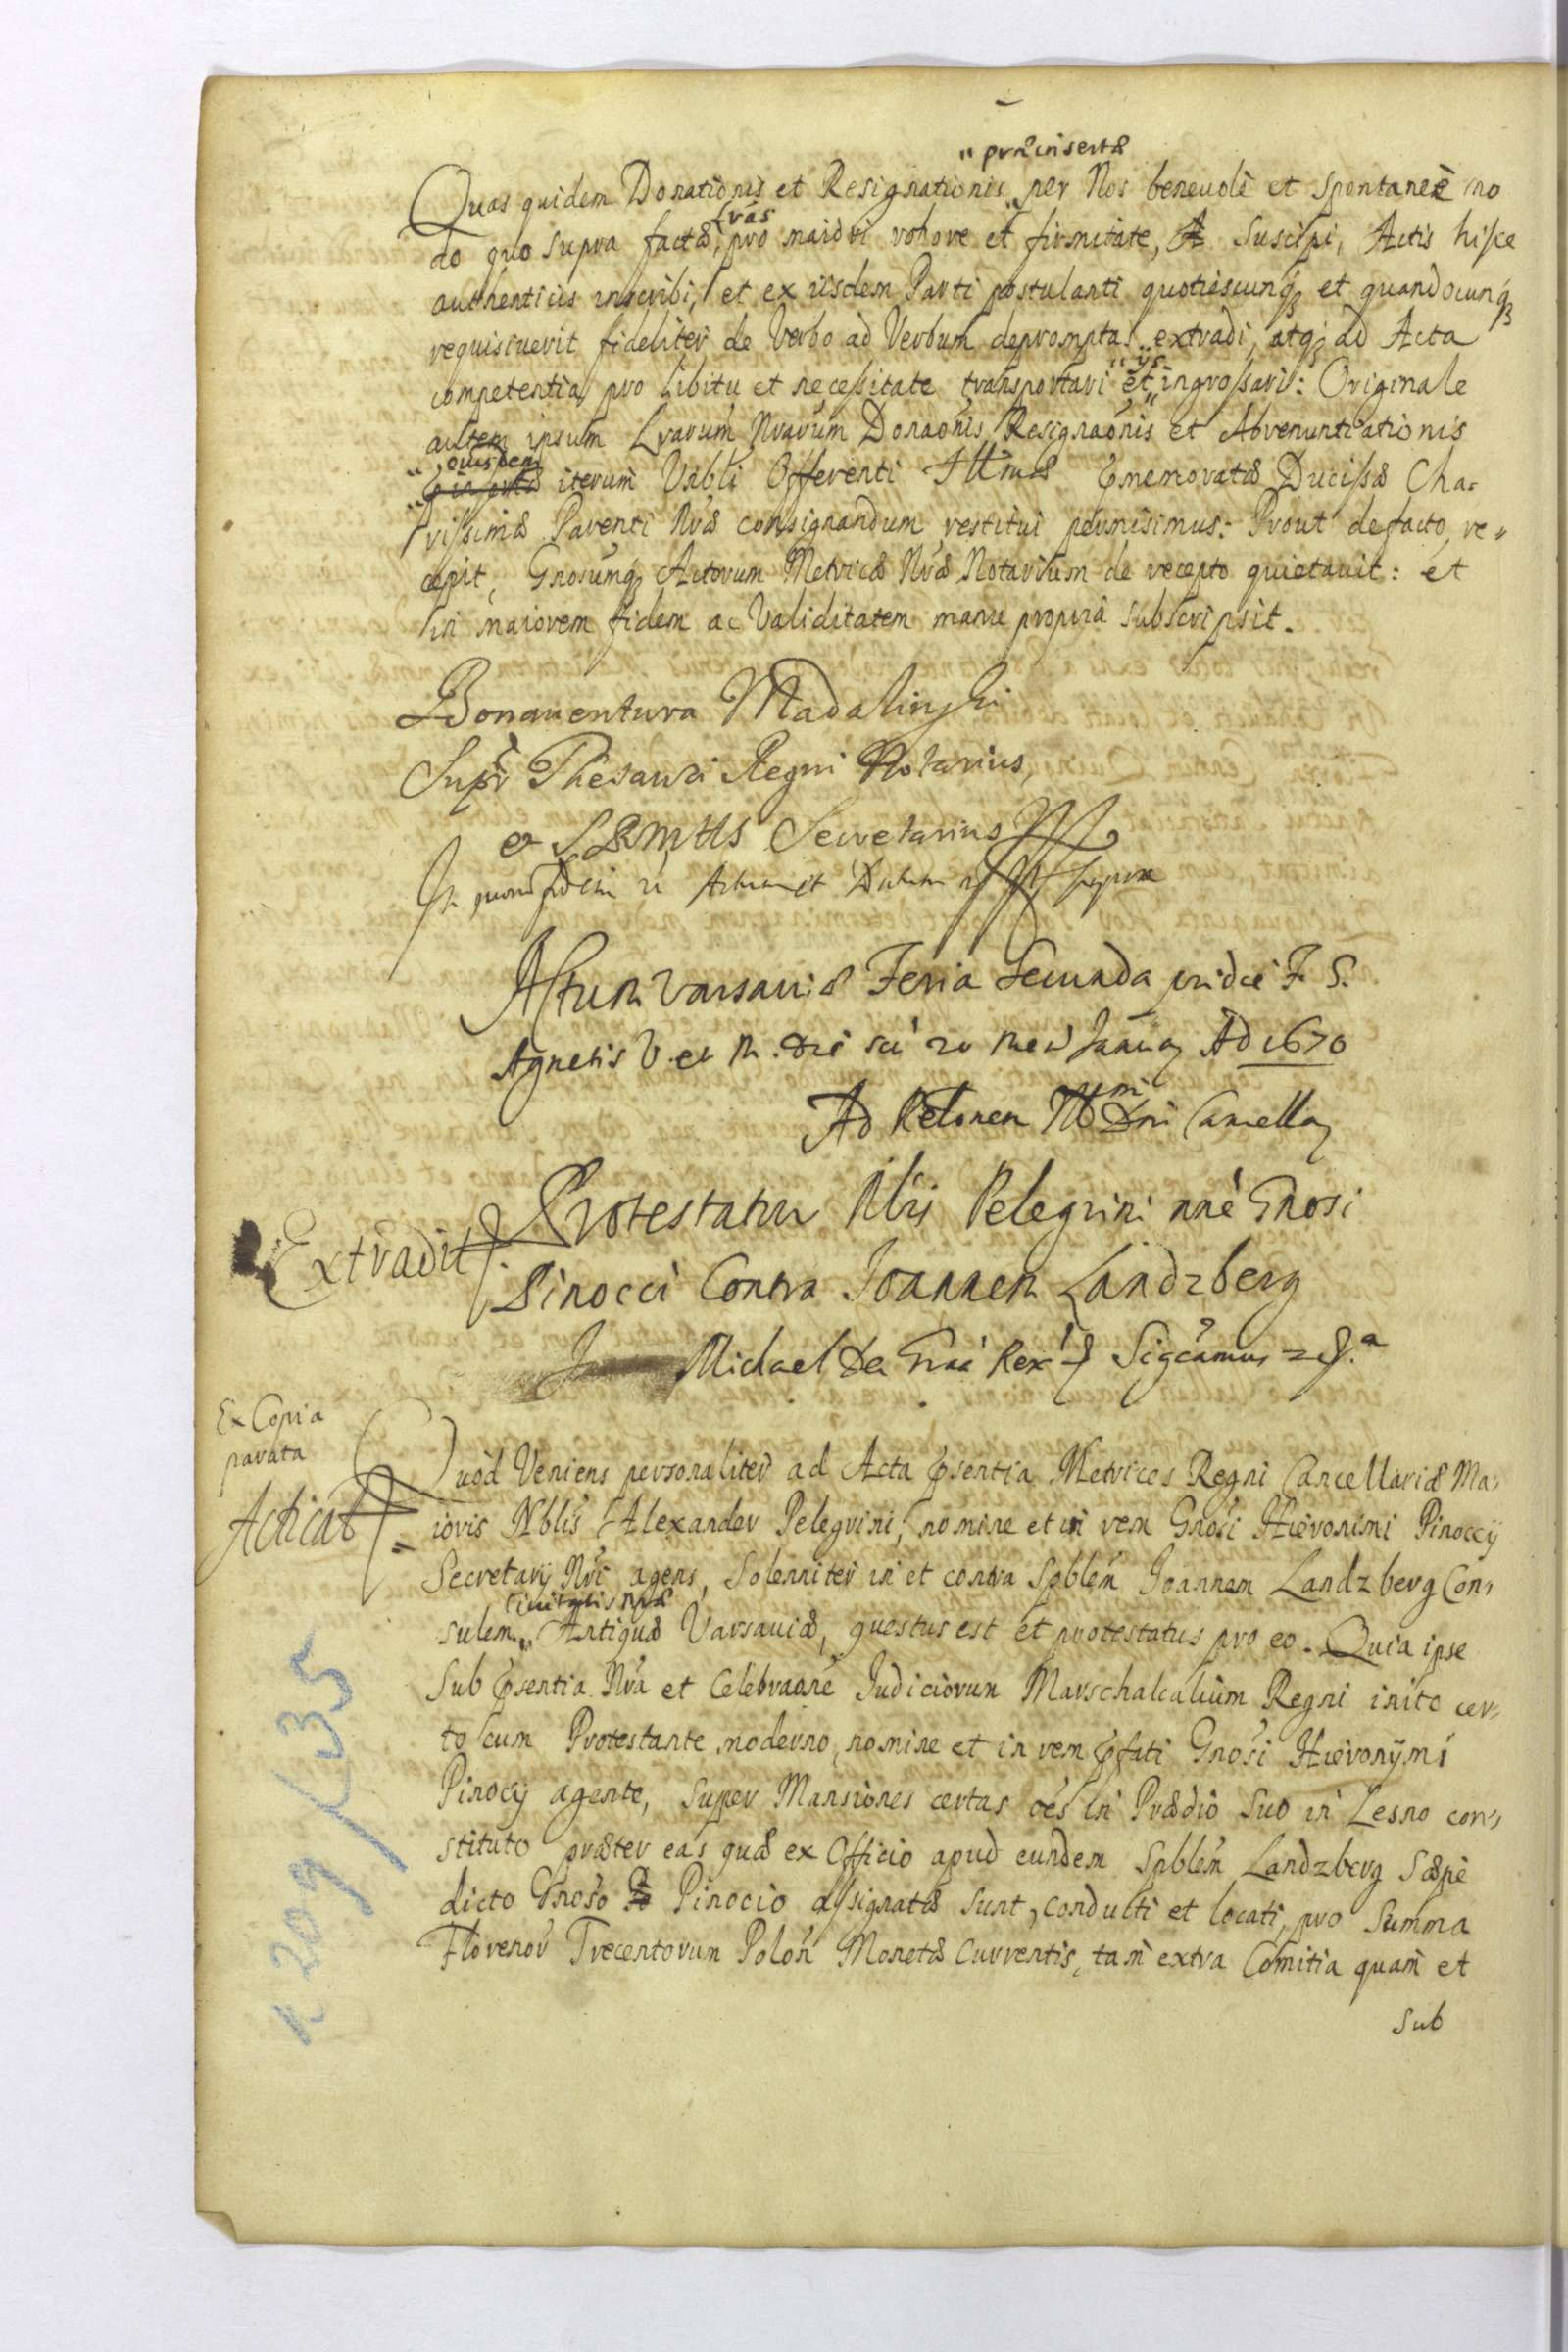 „ præinsertæ
Quas quidem Donationis et Resignationis „ per Nos beneuolè et Spontaneè mo
Lrás
do quo supra factæ, pro maiori robore et firmitate, Suscipi, Actis hisce
authenticis inscribi, et ex iisdem Parti postulanti quotiescunq; et quandocunq;
requisiuerit fideliter de Verbo ad Verbum depromptas extradi, atq; ad Acta
„ ijs
competentia pro libitu et necessitate transportari et „ ingrossari: Originale
autem ipsum Lrarum Nrarum Donaonis Resignaonis et Abrenuntiationis
„ eiusdem
iterum Vrbli Offerenti Illmæ prnemoratæ Ducissæ Cha-
rissimæ Parenti Nræ consignandum restitui permisimus: Prout defacto re-
cepit, Gnosumq; Actorum Metricæ Nræ Notarium de recepto quietauit: et
in maiorem fidem ac Validitatem manu propria subscripsit.
Bonauentura Madalinski
Supr Thesauri Regni Notarius,
et SRMttis Secretarius
In quorum fidem Actum et Datum supra
Actum Varsauiæ Feria Secunda pridie F. S.
Agnetis V. et M. die sci 20 Men Januar AD 1670
Ad Relonem Illmi Dni Cancellar
Protestatur Nbis Pelegrini nne Gnosi
Extradit
Pinocci Contra Joannem Landzberg
Michael Dei Graa Rex Sigcamus
Ex Copia
parata
Quod Veniens personaliter ad Acta prsentia Metrices Regni Cancellariæ Ma-
Acticat
ioris Nblis Alexander Pelegrini, nomine et in rem Gnosi Hieronimi Pinoccij
Secretarij Nri agens, Solenniter in et contra Spblem Joannem Landzberg Con-
Ciuitatis Nræ
sulem „ Antiquæ Varsauiæ, questus est et protestatus pro eo. Quia ipse
Sub prsentia Nra et Celebraone Judiciorum Marschalcalium Regni inito cer-
to cum Protestante moderno, nomine et in rem prfati Gnosi Hieronymi
Pinocij agente, super Mansiones certas oes in Prædio suo in Lesno con-
stituto præter eas quæ ex Officio apud eundem Spblem Landzberg Sæpè
dicto Gnoso Pinocio assignatæ sunt, conducti et locati, pro Summa
Florenor Trecentorum Polon Monetæ Currentis, tam extra Comitia quam et
Sub
k 209/135